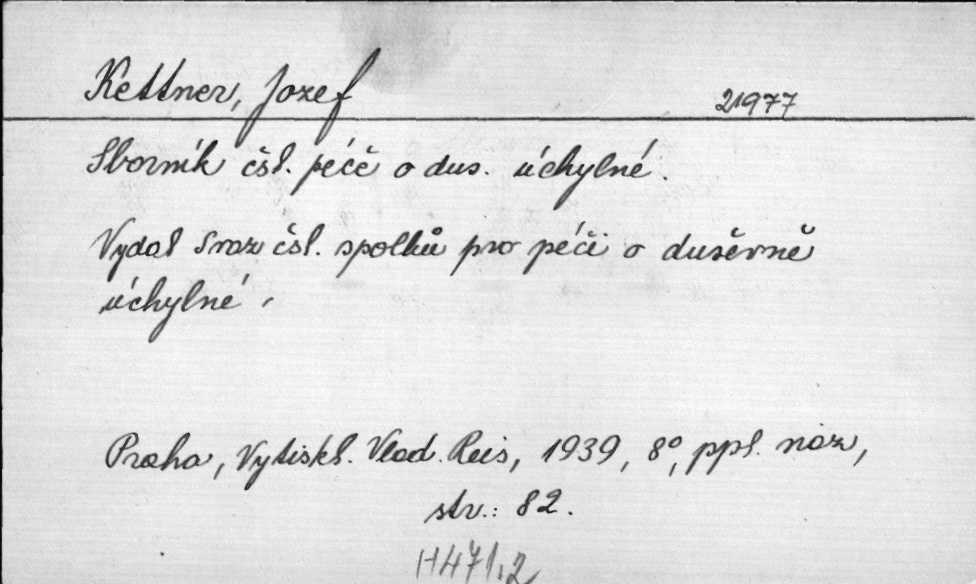 Kettner, Jozef
21977
Sborník čsl. péče o dus. úchylné.
Vydal Svaz čsl. spolků pro péči o duševně
úchylné.
Praha, Vytiskl. Vlad. Reis, 1939, 8°, ppl. náz,
str.: 82.
H471,2